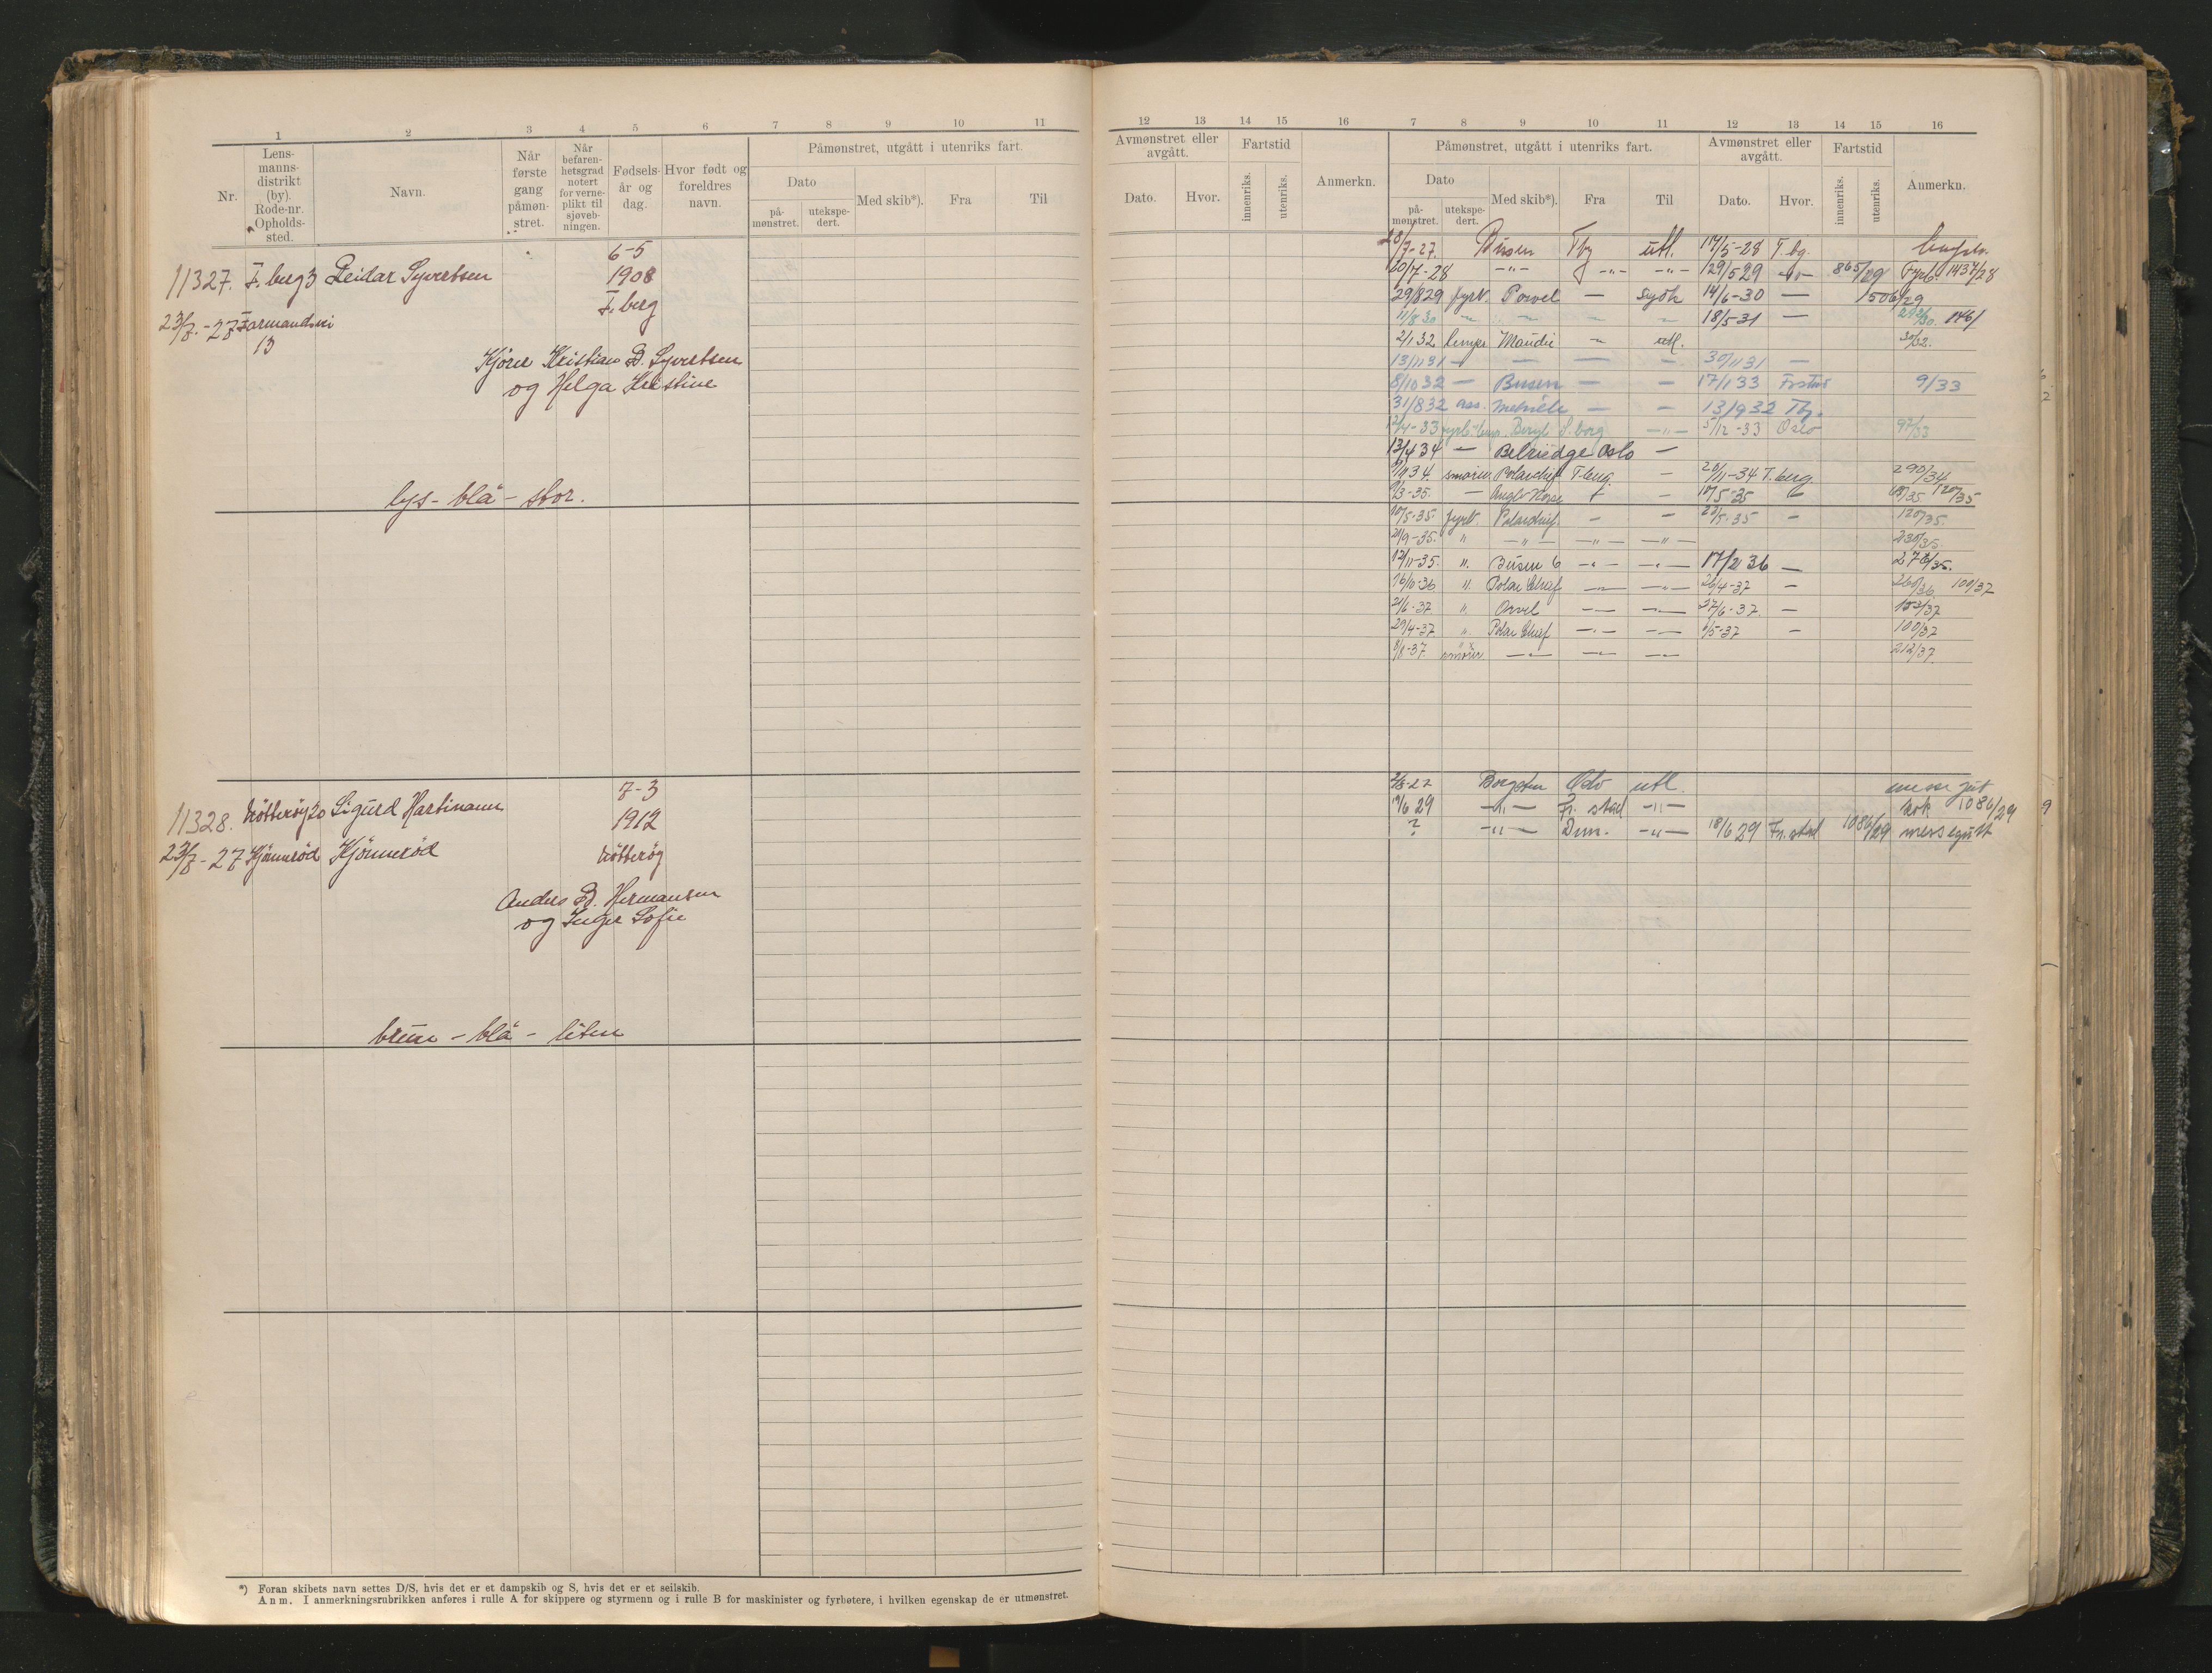 1 2 3 4 5 6 7 8 9 10 11
Nr.
Lens-
manns-
distrikt
(by).
Rode-nr.
Opholds-
sted.
Navn.
Når
første
gang
påmøn-
stret.
Når
befaren-
hetsgrad
notert
for verne-
plikt til
sjøveb-
ningen.
Fødsels-
år og
dag.
Hvor født og
foreldres
navn.
Påmønstret, utgått i utenriks fart.
Dato
på-
mønstret.
utekspe-
dert.
Med skib*).
Fra
Til
11327. T. berg 3 Reidar Syvertsen
6-5
1908
T. berg
23/7.-27
13
Kjører Kristian B. Syvertsen
og Helga Kristine
lys - blå - stor.
11328. Nøtterøy 20 Sigurd Hartmann
7-3
1912
23/7-27 Kjønnerød Kjønnerød
Nøtterøy
Anders B. Hermansen
og Inger Sofie
brun - blå - liten
*) Foran skibets navn settes D/S, hvis det er et dampskib og S, hvis det er et seilskib.
Anm. I anmerkningsrubrikken anføres i rulle A for skippere og styrmenn og i rulle B for maskinister og fyrbøtere, i hvilken egenskap de er utmønstret.
12 13 14 15 16 7 8 9 10 11 12 13 14 15 16
Avmønstret eller
avgått.
Dato.
Hvor.
Fartstid
innenriks.
utenriks.
Anmerkn.
Påmønstret, utgått i utenriks fart.
Dato
på-
mønstret.
utekspe-
dert.
Med skib*).
Fra
Til
Avmønstret eller
avgått.
Dato.
Hvor.
Fartstid
innenriks.
utenriks.
Anmerkn.
/7-27. Busen Tbg utl. 17/5-28 T.bg.
20/7-28 -"- -"- -"- 29/5 29 -"- 865/29 Fyrb. 1437/28
29/8 29 fyrb. Powel — Sydh 14/6-30 — 1506/29
11/8 30 18/5 31 —
2/1 32 lemper Maudie utl. 30/32.
13/11 31 — — — — 30/11 31 —
8/10 32 — Busen — — 17/1 33 9/33
31/8 32 ass. — — 13/9 32 Tbg.
-33 Beryl S. borg -"- 5/12-33 Oslo 92/33
13/4 34 — Belridge Oslo —
34. smører T. berg. — 20/11-34 T. berg 290/34
/3-35. — Anglo Norse — 10/5-35 120/35
10/5-35. fyrb. — — 22/5-35 — 120/35.
/9-35. " -"- -"- -"- 230/35.
12/11-35. " Busen 6 -"- -"- 17/2 36 —
16/10-36 " Polar Chief -"- -"- 26/4-37 — 260/36 100/37
21/6-37 " Orvel -"- -"- 27/6-37 — 152/37
29/4-37 " Polar Chief -"- -"- /5-37 — 100/37
/8-37 smører -"- -"- -"- 212/37
Borgsten Oslo utl. messegut
/6 29 -"- Fr. stad -"- kok 1086/29
? -"- Dun. -"- 18/6 29 Fr. stad 1086/29 messegutt